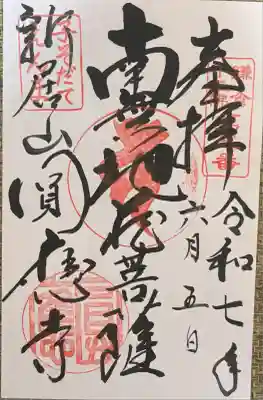 奉拝
令和七年
六月五日
南無地蔵菩薩
新居山圓應寺